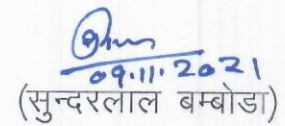 09.11.2021
(सुन्दरलाल बम्बोडा)